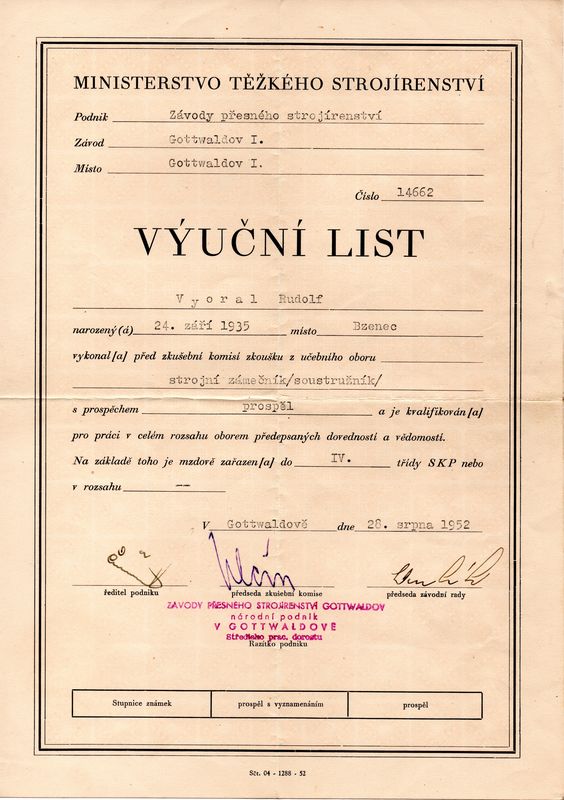 MINISTERSTVO TĚŽKÉHO STROJÍRENSTVÍ
Podnik Závody přesného strojírenství
Závod Gottwaldov I.
Místo Gottwaldov I.
Číslo 14662
VÝUČNÍ LIST
Vyoral Rudolf
narozený(á) 24. září 1935 místo Bzenec
vykonal[a] před zkušební komisí zkoušku z učebního oboru
strojní zámečník/soustružník/
s prospěchem prospěl a je kvalifikován[a]
pro práci v celém rozsahu oborem předepsaných dovedností a vědomostí.
Na základě toho je mzdově zařazen[a] do IV. třídy SKP nebo
v rozsahu --
V Gottwaldově dne 28. srpna 1952
ředitel podniku předseda zkušební komise předseda závodní rady
ZÁVODY PŘESNÉHO STROJÍRENSTVÍ GOTTWALDOV
národní podnik
V GOTTWALDOVĚ
Středisko prac. dorostu
Razítko podniku
Stupnice známek prospěl s vyznamenáním prospěl
Sčt. 04 - 1288 - 52